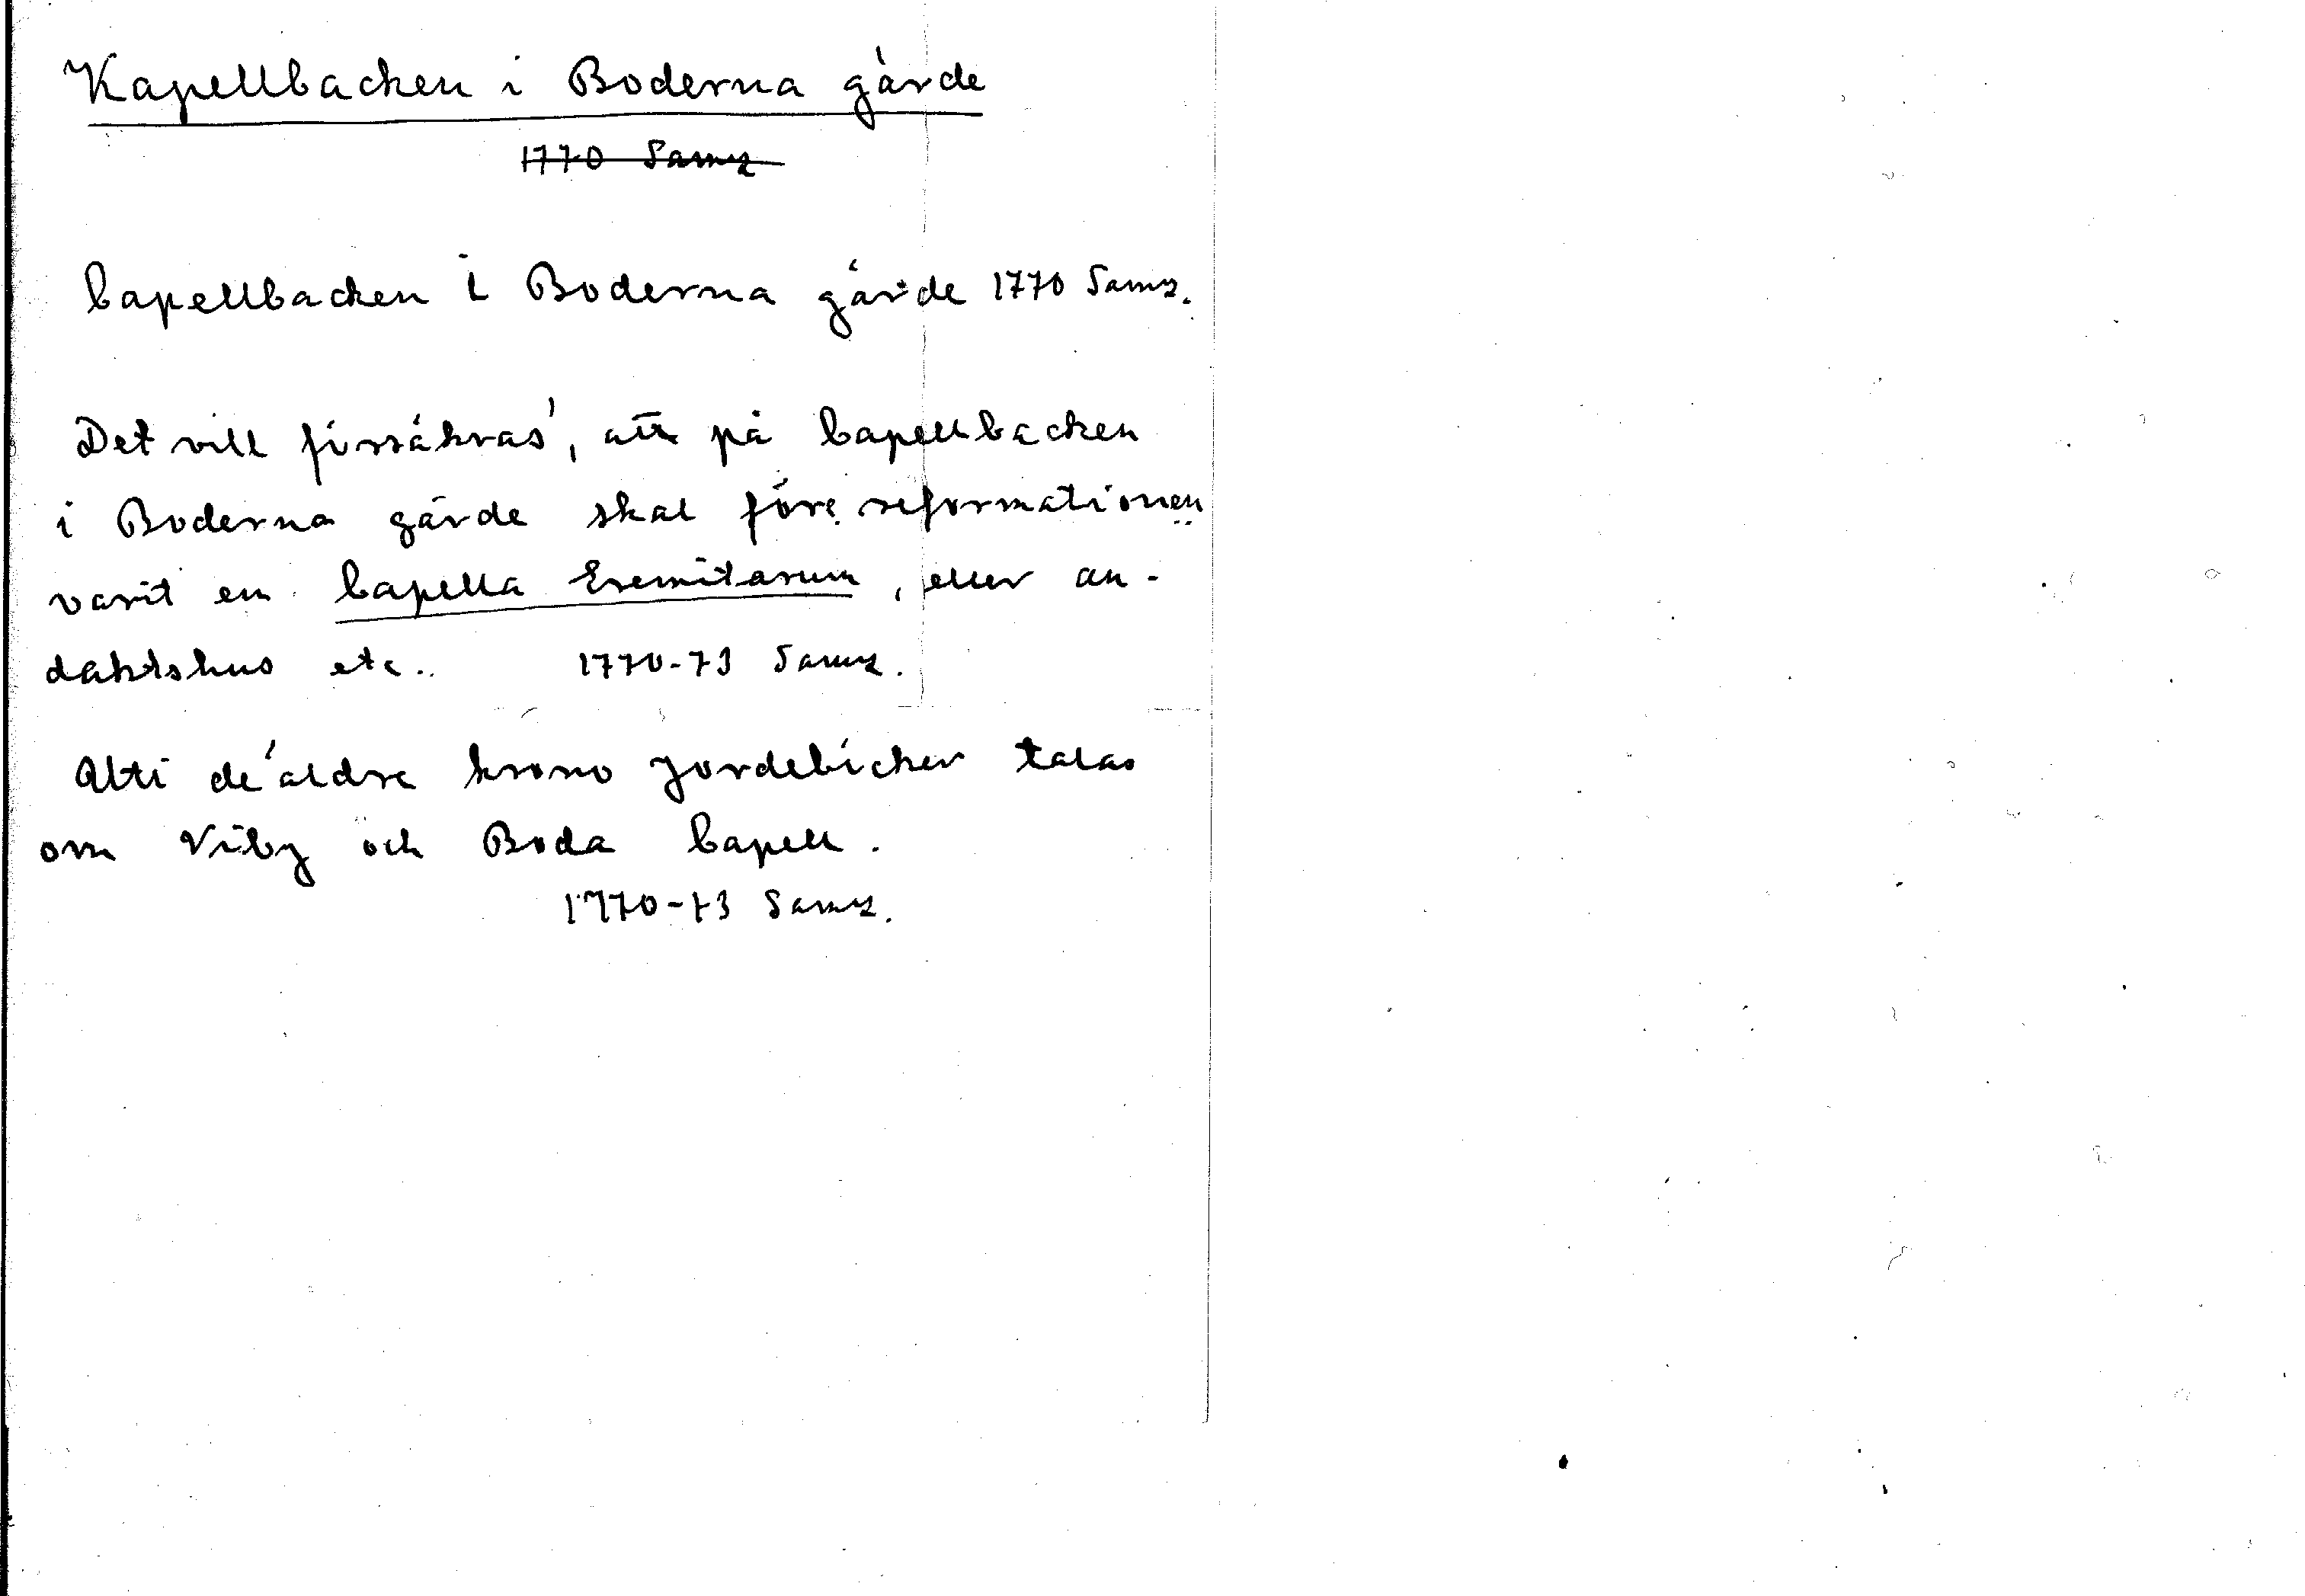 Kapellbacken i Boderna gärde
1770 Samz
Capellbacken i Boderna gärde 1770 Samz.
Det vill försäkras, att på Capellbacken
i Boderna gärde skal före reformationen
varit en Capella Eremitarum, eller an-
daktshus etc. 1770-73 Samz.
Uti de äldre krono jordeböcker talas
om Viby och Boda Capell.
1770-73 Samz.